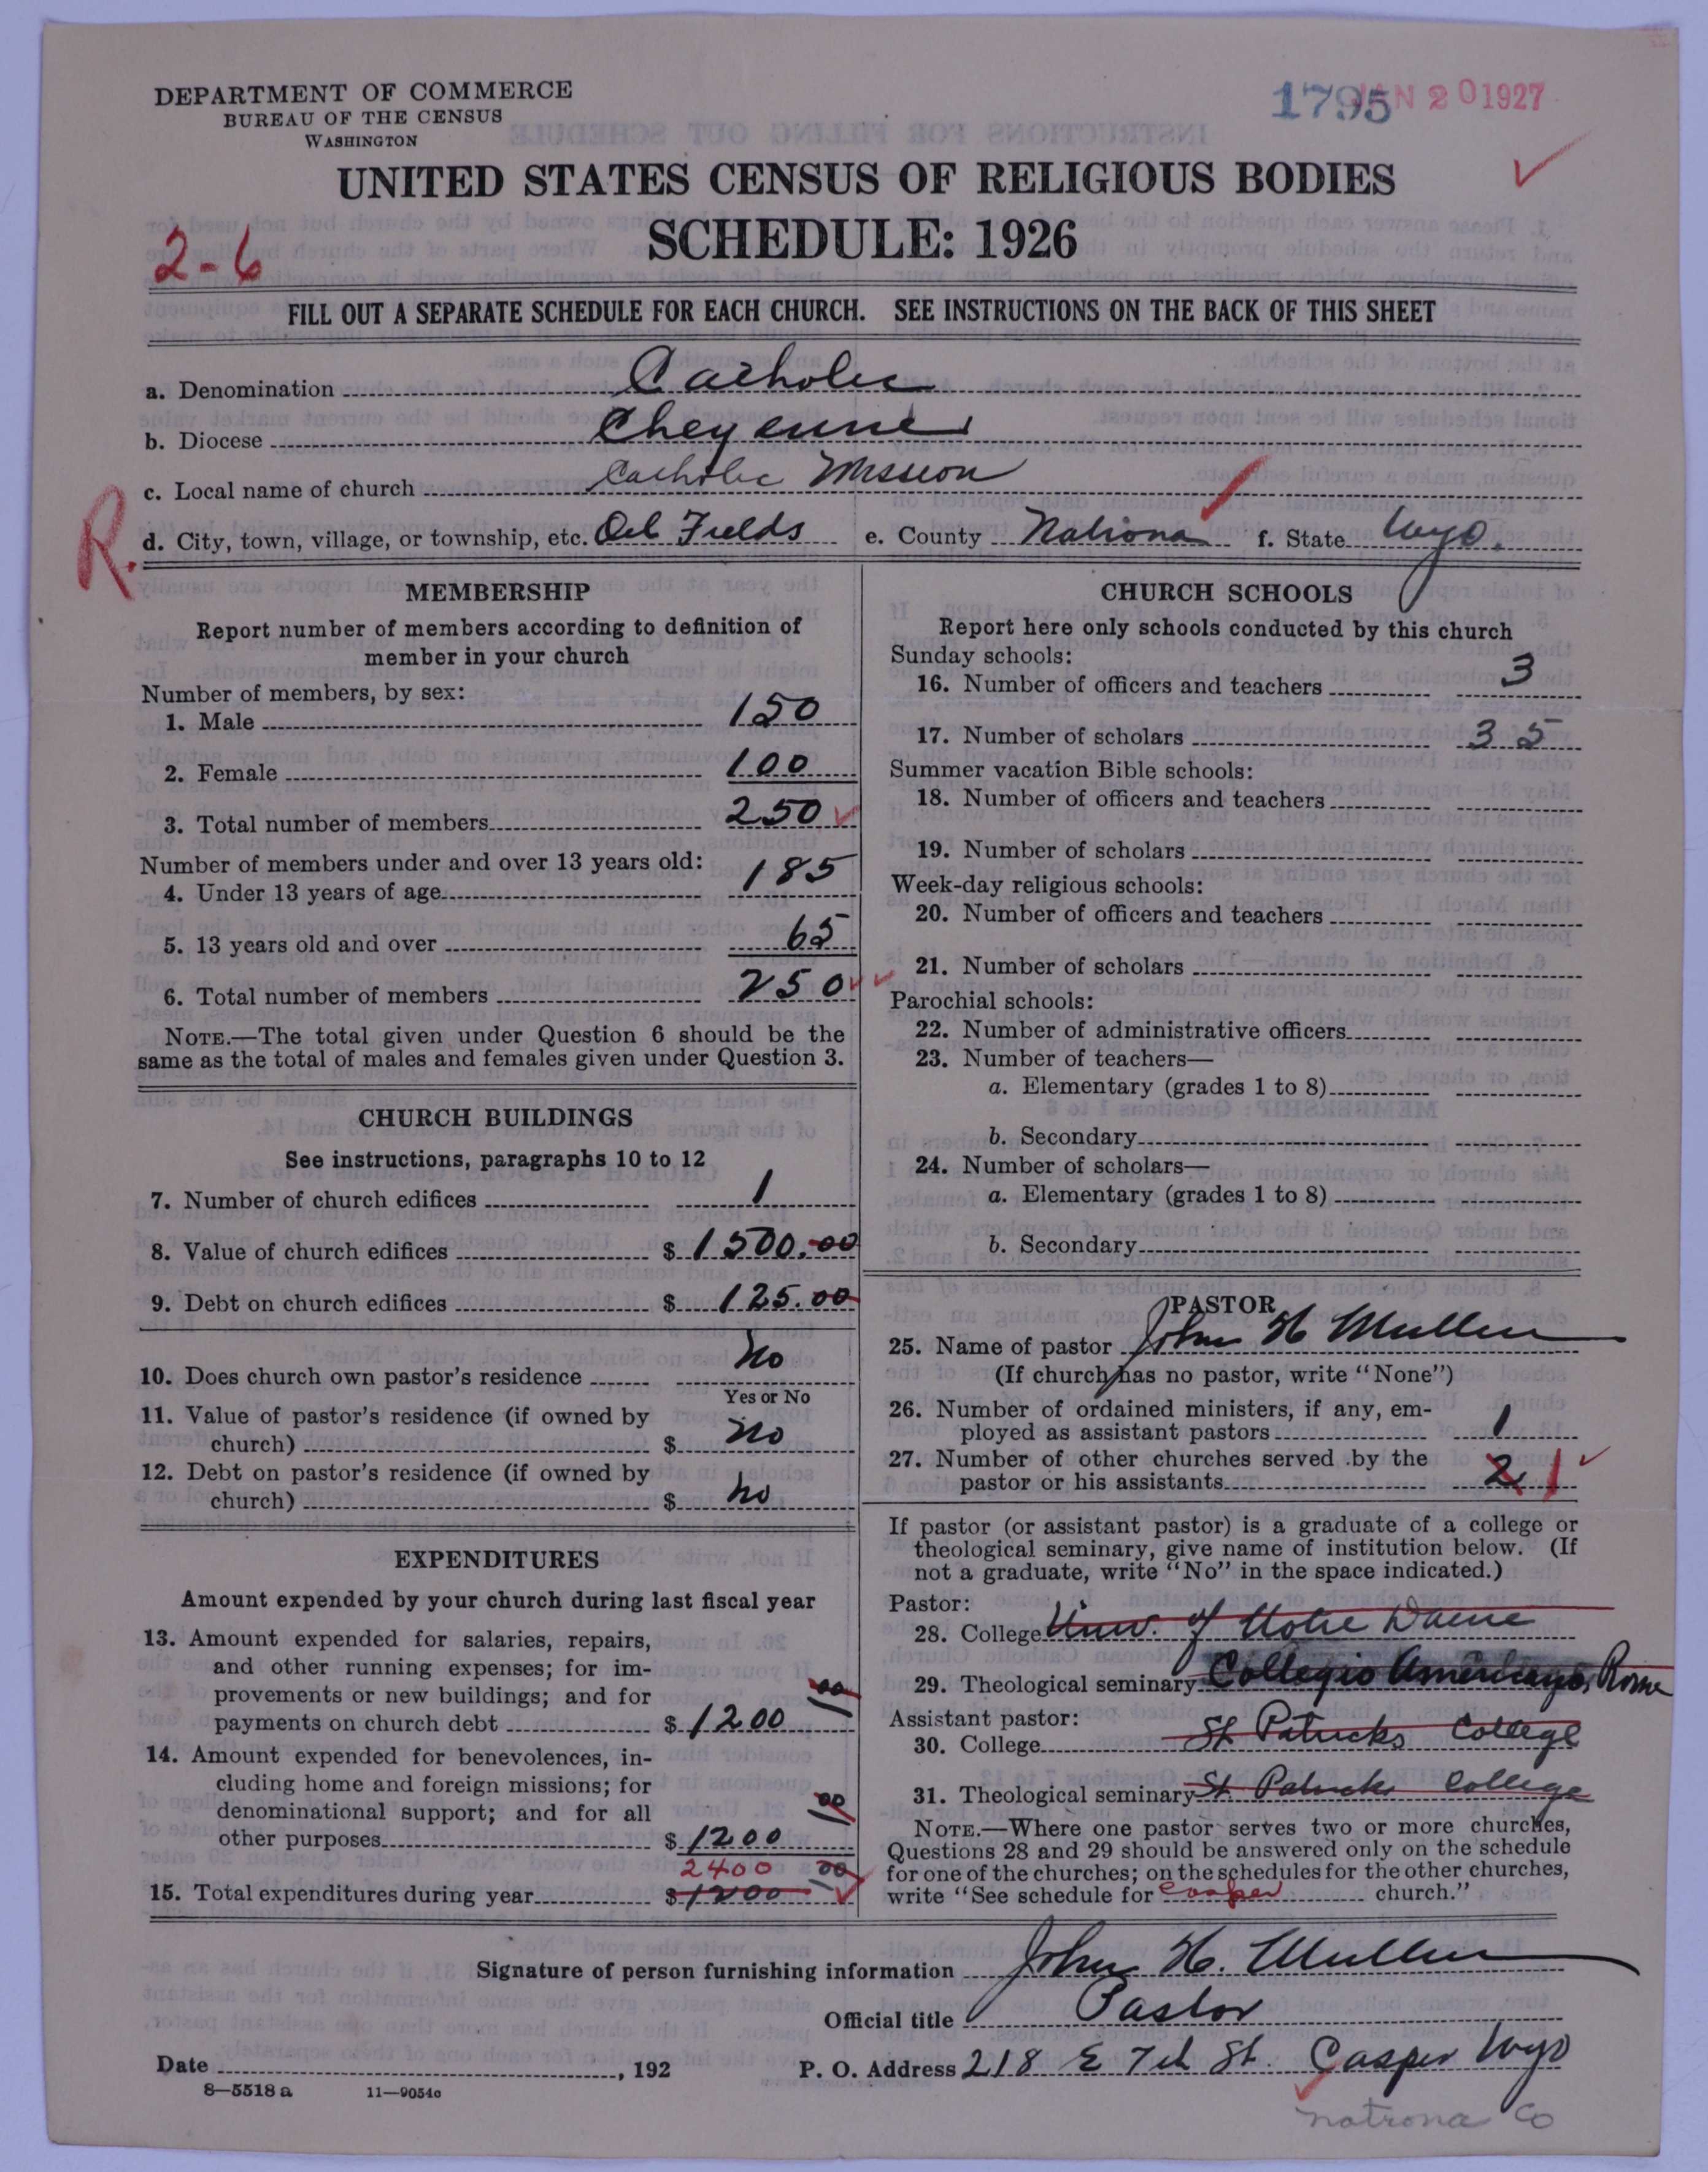 DEPARTMENT OF COMMERCE
BUREAU OF THE CENSUS
WASHINGTON
1795
JAN 20 1927
UNITED STATES CENSUS OF RELIGIOUS BODIES
SCHEDULE: 1926
2-6
FILL OUT A SEPARATE SCHEDULE FOR EACH CHURCH. SEE INSTRUCTIONS ON THE BACK OF THIS SHEET
a. Denomination Catholic
b. Diocese Cheyenne
c. Local name of church Catholic Mission
R.
d. City, town, village, or township, etc. Oil Fields e. County Natrona f. State Wyo.
MEMBERSHIP
Report number of members according to definition of
member in your church
Number of members, by sex:
1. Male 150
2. Female 100
3. Total number of members 250
Number of members under and over 13 years old:
4. Under 13 years of age 185
5. 13 years old and over 65
6. Total number of members 250
NOTE.—The total given under Question 6 should be the
same as the total of males and females given under Question 3.
CHURCH BUILDINGS
See instructions, paragraphs 10 to 12
7. Number of church edifices 1
8. Value of church edifices $ 1500.00
9. Debt on church edifices $ 125.00
10. Does church own pastor's residence No
Yes or No
11. Value of pastor's residence (if owned by
church) $ No
12. Debt on pastor's residence (if owned by
church) $ No
EXPENDITURES
Amount expended by your church during last fiscal year
13. Amount expended for salaries, repairs,
and other running expenses; for im-
provements or new buildings; and for
payments on church debt $ 1200 00
14. Amount expended for benevolences, in-
cluding home and foreign missions; for
denominational support; and for all
other purposes $ 1200 00
2400 00
15. Total expenditures during year $ 1200
CHURCH SCHOOLS
Report here only schools conducted by this church
Sunday schools:
16. Number of officers and teachers 3
17. Number of scholars 35
Summer vacation Bible schools:
18. Number of officers and teachers
19. Number of scholars
Week-day religious schools:
20. Number of officers and teachers
21. Number of scholars
Parochial schools:
22. Number of administrative officers
23. Number of teachers—
a. Elementary (grades 1 to 8)
b. Secondary
24. Number of scholars—
a. Elementary (grades 1 to 8)
b. Secondary
PASTOR
25. Name of pastor John H Mullen
(If church has no pastor, write "None")
26. Number of ordained ministers, if any, em-
ployed as assistant pastors 1
27. Number of other churches served by the
pastor or his assistants 2 1
If pastor (or assistant pastor) is a graduate of a college or
theological seminary, give name of institution below. (If
not a graduate, write "No" in the space indicated.)
Pastor:
28. College Univ. of Notre Dame
29. Theological seminary Collegio Americano, Rome
Assistant pastor:
30. College St Patricks College
31. Theological seminary St Patricks College
NOTE.—Where one pastor serves two or more churches,
Questions 28 and 29 should be answered only on the schedule
for one of the churches; on the schedules for the other churches,
write "See schedule for Casper church."
Signature of person furnishing information John H. Mullen
Official title Pastor
Date , 192
P. O. Address 218 E 7th St. Casper Wyo
8—5518 a 11—9054a
natrona Co